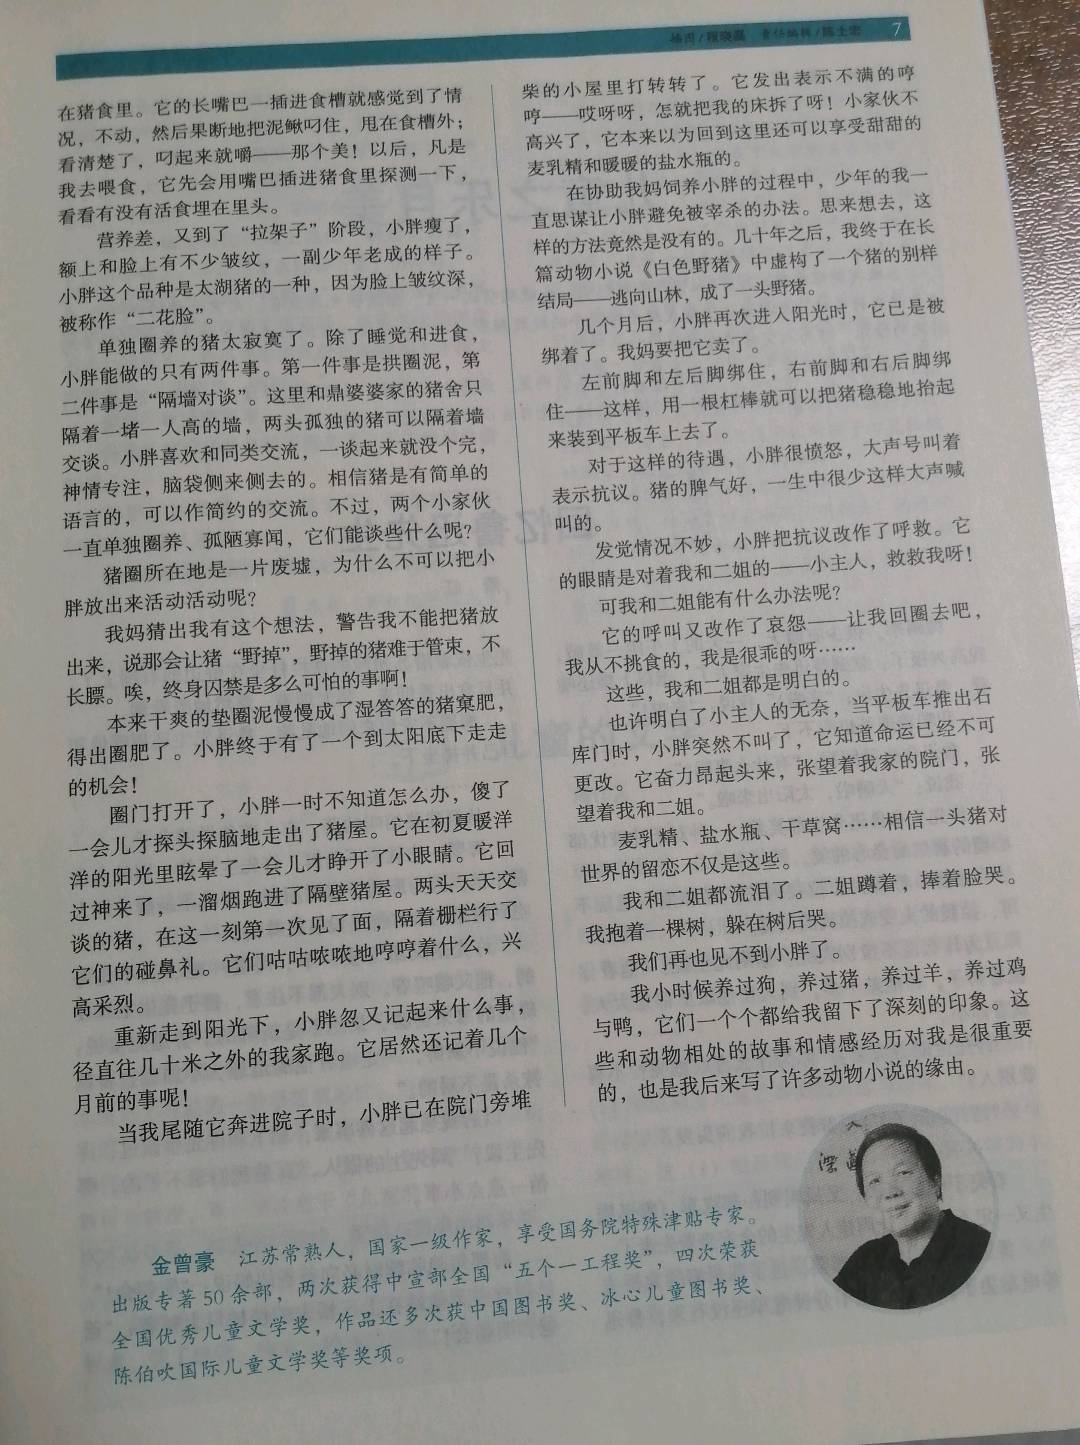 插图/程晓磊 责任编辑/陈士忠 7
在猪食里。它的长嘴巴一插进食槽就感觉到了情
况，不动，然后果断地把泥鳅叼住，甩在食槽外；
看清楚了，叼起来就嚼——那个美！以后，凡是
我去喂食，它先会用嘴巴插进猪食里探测一下，
看看有没有活食埋在里头。
营养差，又到了“拉架子”阶段，小胖瘦了，
额上和脸上有不少皱纹，一副少年老成的样子。
小胖这个品种是太湖猪的一种，因为脸上皱纹深，
被称作“二花脸”。
单独圈养的猪太寂寞了。除了睡觉和进食，
小胖能做的只有两件事。第一件事是拱圈泥，第
二件事是“隔墙对谈”。这里和鼎婆婆家的猪舍只
隔着一堵一人高的墙，两头孤独的猪可以隔着墙
交谈。小胖喜欢和同类交流，一谈起来就没个完，
神情专注，脑袋侧来侧去的。相信猪是有简单的
语言的，可以作简约的交流。不过，两个小家伙
一直单独圈养、孤陋寡闻，它们能谈些什么呢？
猪圈所在地是一片废墟，为什么不可以把小
胖放出来活动活动呢？
我妈猜出我有这个想法，警告我不能把猪放
出来，说那会让猪“野掉”，野掉的猪难于管束，不
长膘。唉，终身囚禁是多么可怕的事啊！
本来干爽的垫圈泥慢慢成了湿答答的猪窠肥，
得出圈肥了。小胖终于有了一个到太阳底下走走
的机会！
圈门打开了，小胖一时不知道怎么办，傻了
一会儿才探头探脑地走出了猪屋。它在初夏暖洋
洋的阳光里眩晕了一会儿才睁开了小眼睛。它回
过神来了，一溜烟跑进了隔壁猪屋。两头天天交
谈的猪，在这一刻第一次见了面，隔着栅栏行了
它们的碰鼻礼。它们咕咕哝哝地哼哼着什么，兴
高采烈。
重新走到阳光下，小胖忽又记起来什么事，
径直往几十米之外的我家跑。它居然还记着几个
月前的事呢！
当我尾随它奔进院子时，小胖已在院门旁堆
柴的小屋里打转转了。它发出表示不满的哼
哼——哎呀呀，怎就把我的床拆了呀！小家伙不
高兴了，它本来以为回到这里还可以享受甜甜的
麦乳精和暖暖的盐水瓶的。
在协助我妈饲养小胖的过程中，少年的我一
直思谋让小胖避免被宰杀的办法。思来想去，这
样的方法竟然是没有的。几十年之后，我终于在长
篇动物小说《白色野猪》中虚构了一个猪的别样
结局——逃向山林，成了一头野猪。
几个月后，小胖再次进入阳光时，它已是被
绑着了。我妈要把它卖了。
左前脚和左后脚绑住，右前脚和右后脚绑
住——这样，用一根杠棒就可以把猪稳稳地抬起
来装到平板车上去了。
对于这样的待遇，小胖很愤怒，大声号叫着
表示抗议。猪的脾气好，一生中很少这样大声喊
叫的。
发觉情况不妙，小胖把抗议改作了呼救。它
的眼睛是对着我和二姐的——小主人，救救我呀！
可我和二姐能有什么办法呢？
它的呼叫又改作了哀怨——让我回圈去吧，
我从不挑食的，我是很乖的呀……
这些，我和二姐都是明白的。
也许明白了小主人的无奈，当平板车推出石
库门时，小胖突然不叫了，它知道命运已经不可
更改。它奋力昂起头来，张望着我家的院门，张
望着我和二姐。
麦乳精、盐水瓶、干草窝……相信一头猪对
世界的留恋不仅是这些。
我和二姐都流泪了。二姐蹲着，捧着脸哭。
我抱着一棵树，躲在树后哭。
我们再也见不到小胖了。
我小时候养过狗，养过猪，养过羊，养过鸡
与鸭，它们一个个都给我留下了深刻的印象。这
些和动物相处的故事和情感经历对我是很重要
的，也是我后来写了许多动物小说的缘由。
金曾豪 江苏常熟人，国家一级作家，享受国务院特殊津贴专家。
出版专著50余部，两次获得中宣部全国“五个一工程奖”，四次荣获
全国优秀儿童文学奖，作品还多次获中国图书奖、冰心儿童图书奖、
陈伯吹国际儿童文学奖等奖项。